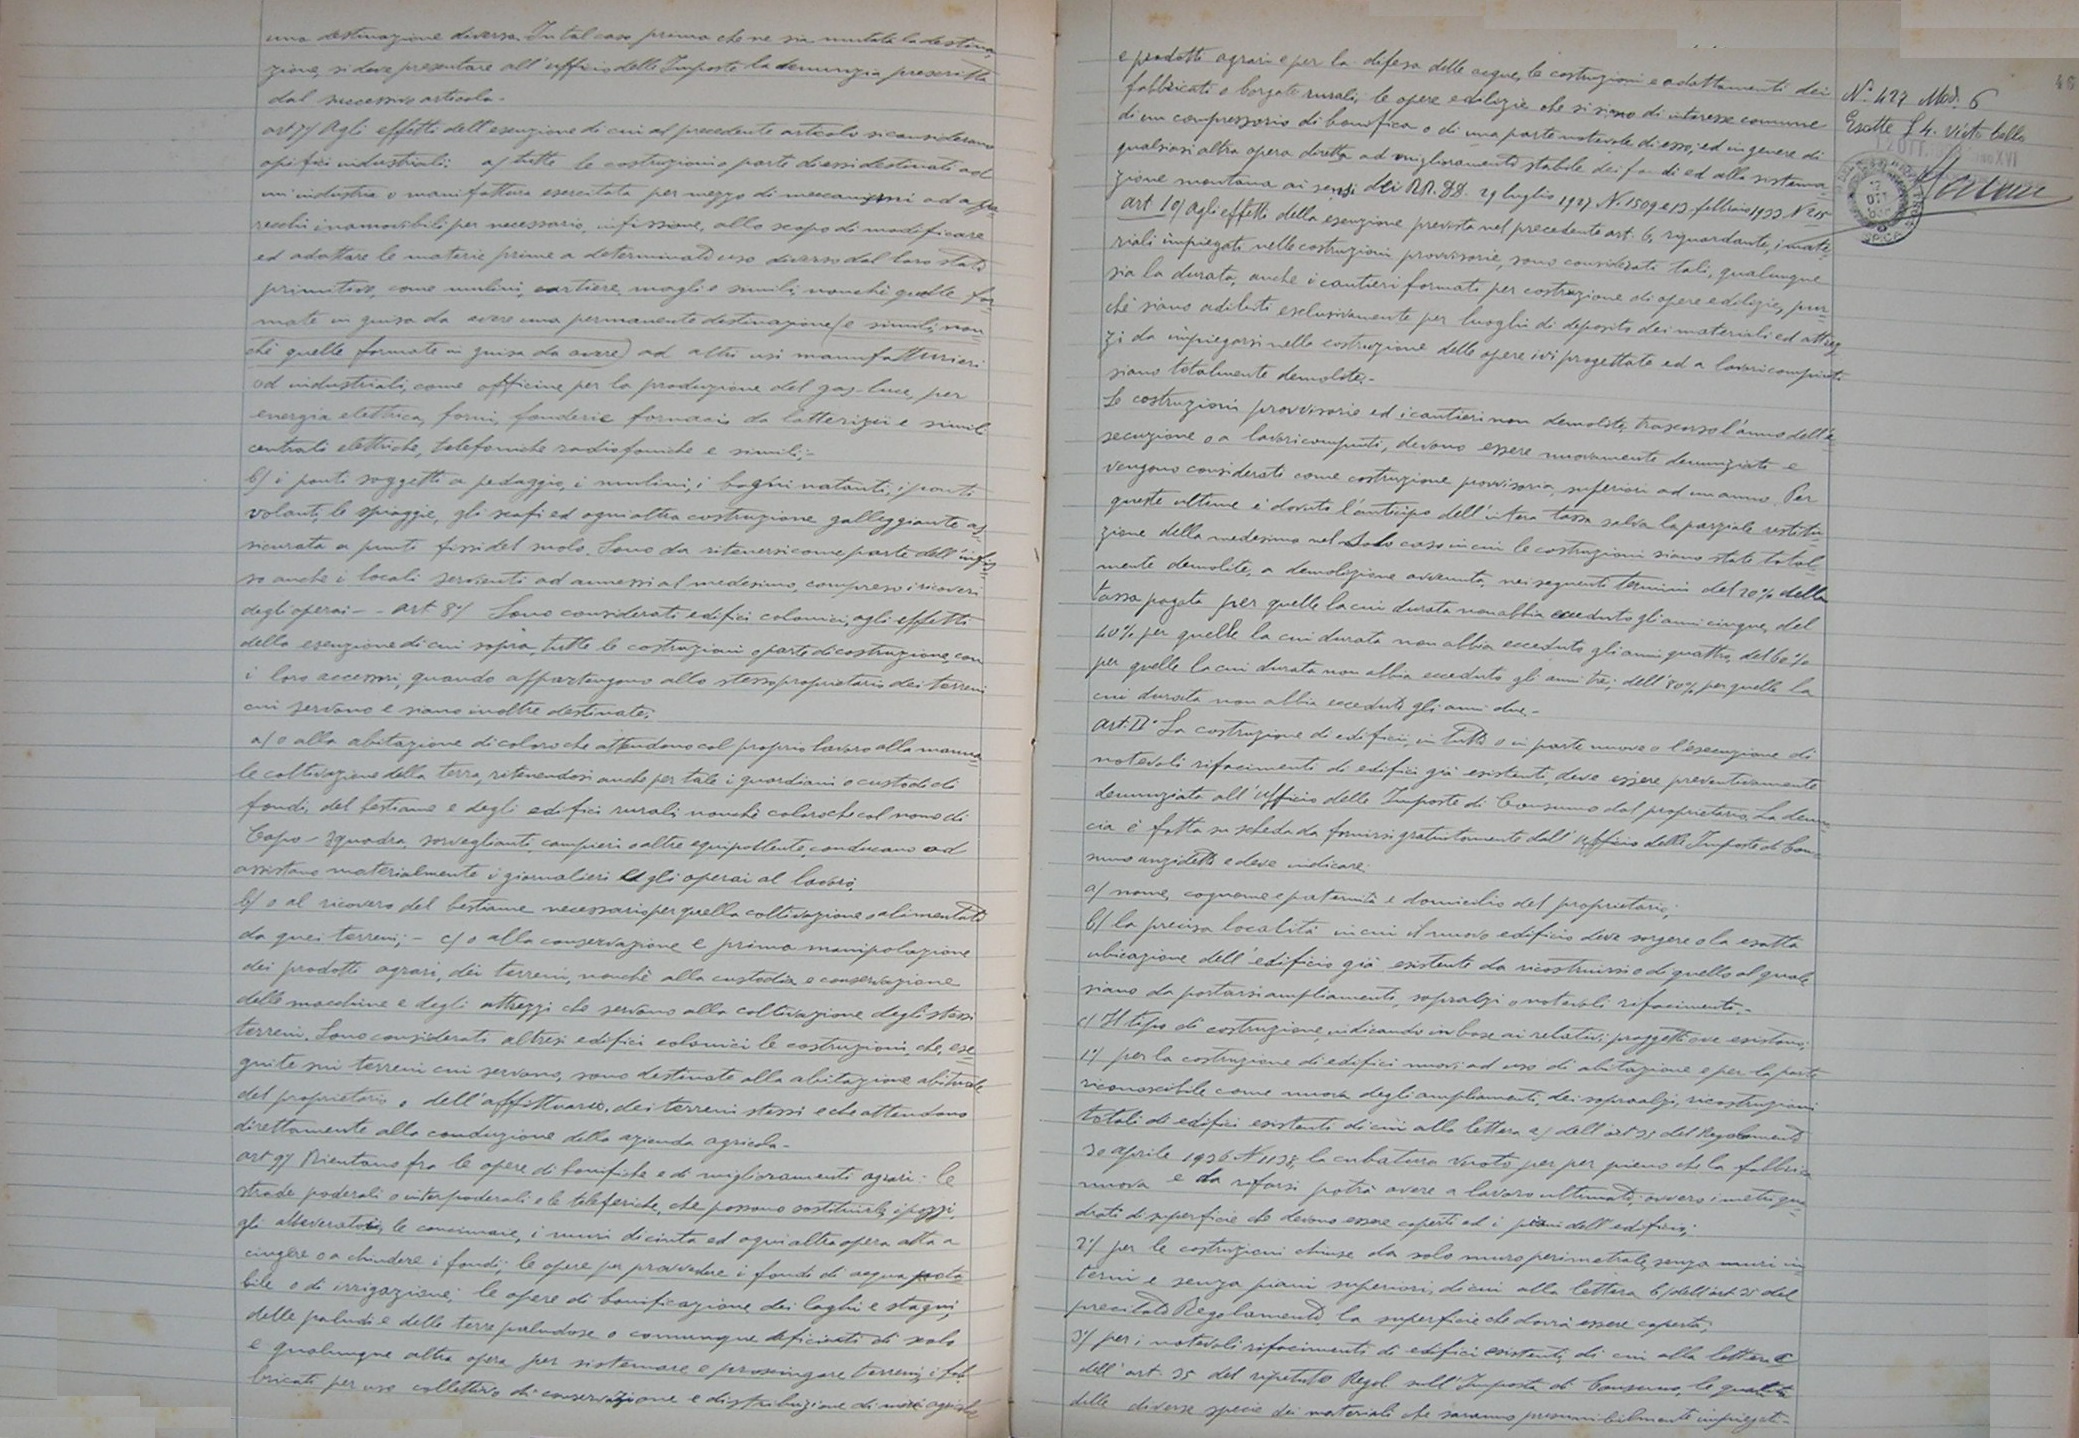 una destinazione diversa. In tal caso, prima che ne sia mutata la destina=
zione, si deve presentare all'ufficio delle Imposte la denunzia prescritta
dal successivo articolo.-
art. 7°/ Agli effetti dell'esenzione di cui al precedente articolo si considerano
opifici industriali: a/ tutte le costruzioni o parte di essi destinati ad
un'industria o manifattura esercitata per mezzo di meccanismi od appa=
recchi inamovibili per necessaria infissione, allo scopo di modificare
ed adattare le materie prime a determinato uso diverso dal loro stato
primitivo, come mulini, cartiere, magli e simili, nonchè quelle for=
mate in guisa da avere una permanente destinazione (e simili, non
chè quelle formate in guisa da avere) ad altri usi manufatturieri
od industriali, come officine per la produzione del gas-luce, per
energia elettrica, forni, fonderie fornaci da latterizii e simili
centrali elettriche, telefoniche radiofoniche e simili;-
b/ i ponti soggetti a pedaggio, i mulini, i bagni natanti, i ponti
volanti, le spiaggie, gli scafi ed ogni altra costruzione galleggiante as=
sicurata a punti fissi del suolo. Sono da ritenersi come parte dell'infis=
so anche i locali servienti ad annessi al medesimo, compreso i ricoveri
degli operai - - art. 8°/ Sono considerati edifici colonici, agli effetti
della esenzione di cui sopra, tutte le costruzioni o parte di costruzione, con
i loro accessori, quando appartengono allo stesso proprietario dei terreni
cui servono e siano inoltre destinate:
a/ o alla abitazione di coloro che attendono col proprio lavoro alla manua=
le coltivazione della terra, ritenendosi anche per tale i guardiani o custodi di
fondi, del bestiame e degli edifici rurali, nonchè coloro che col nome di
Capo-squadra, sorveglianti, campieri o altre equipollente, conducano ed
assistano materialmente i giornalieri e gli operai al lavoro;
b/ o al ricovero del bestiame necessario per quella coltivazione o alimentato
da quei terreni;- c/ o alla conservazione e prima manipolazione
dei prodotti agrari, dei terreni, nonchè alla custodia e conservazione
delle macchine e degli attrezzi che servono alla coltivazione degli stessi
terreni. Sono considerati altresì edifici colonici le costruzioni, che, ese
guite sui terreni cui servono, sono destinate alla abitazione abituale
del proprietario o dell'affittuario, dei terreni stessi e che attendono
direttamente alla conduzione della azienda agricola.-
art. 9°/ Rientrano fra le opere di bonifiche e di miglioramenti agrari: le
strade poderali o interpoderali e le teleferiche, che possono sostituirle, i pozzi,
gli abbeveratoi, le concimaie, i muri di cinta ed ogni altra opera atta a
cingere o a chiudere i fondi; le opere per provvedere i fondi di acqua pota=
bile o di irrigazione; le opere di bonificazione dei laghi e stagni,
delle paludi e delle terre paludose o comunque deficienti di scolo
e qualunque altra opera per sistemare e prosciugare terreni, i fab=
bricati per uso collettivo di conservazione e distribuzione di
e prodotti agrari e per la difesa delle acque, le costruzioni e adattamenti dei
fabbricati o borgate rurali, le opere edilizie che si siano di interesse comune
di un compressorio di bonifica o di una parte notevole di esso; ed in genere di
qualsiasi altra opera diretta ad miglioramento stabile dei fondi ed alla sistema=
zione montana ai sensi dei RR. DD. 29 luglio 1927 N. 1509 e 13 febbraio 1933 N. 215
art. 10/ Agli effetti della esenzione prevista nel precedente art. 6, riguardante, i mate=
riali impiegati nelle costruzioni provvisorie, sono considerati tali, qualunque
sia la durata, anche i cantieri formati per costruzione di opere edilizie, pur=
chè siano adibiti esclusivamente per luoghi di deposito dei materiali ed attrez
zi da impiegarsi nella costruzione delle opere ivi progettate ed a lavori compiuti
siano totalmente demolite.-
Le costruzioni provvisorie ed i cantieri non demolite, trascorso l'anno dell'e=
secuzione o a lavori compiuti, devono essere nuovamente denunziate e
vengono considerati come costruzione provvisoria, superiori ad un anno. Per
queste ultime è dovuto l'anticipo dell'intera tassa salva la parziale restitu=
zione della medesima nel solo caso in cui le costruzioni siano state total
mente demolite, a demolizione avvenuta, nei seguenti termini del 20% della
tassa pagata per quelle la cui durata non abbia ecceduto gli anni cinque, del
40% per quelle la cui durata non abbia ecceduto gli anni quattro, del 60%
per quelle la cui durata non abbia ecceduto gli anni tre; dell'80% per quelle la
cui durata non abbia ecceduto gli anni due.-
art. II° La costruzione di edificii, in tutto o in parte nuove o l'esecuzione di
notevoli rifacimenti di edifici già esistenti, deve essere preventivamente
denunziata all'Ufficio delle Imposte di Consumo dal proprietario. La denun=
cia è fatta su scheda da fornirsi gratuitamente dall'Ufficio delle Imposte di Con=
sumo anzidetto e deve indicare:
a/ nome, cognome e paternità e domicilio del proprietario;
b/ la precisa località in cui il nuovo edificio deve sorgere o la esatta
ubicazione dell'edificio già esistente da ricostruirsi o di quello al quale
siano da portarsi ampliamenti, sopralzi o notevoli rifacimenti.-
c/ Il tipo di costruzione, indicando in base ai relativi progetti ove esistono;
1°/ per la costruzione di edifici nuovi ad uso di abitazione e per la parte
riconoscibile come nuova degli ampliamenti, dei sopraalzi, ricostruzioni
totali di edifici esistenti di cui alla lettera a/ dell'art. 35 del Regolamento
30 aprile 1936 N. 1138, la cubatura vuoto per per pieno che la fabbrica
nuova e da rifarsi potrà avere a lavoro ultimato; ovvero i metri qua=
drati di superficie che devono essere coperti ed i piani dell'edificio;
2°/ per le costruzioni chiuse da solo muro perimetrale, senza muri in=
terni e senza piani superiori, di cui alla lettera b/ dell'art. 35 del
precitato Regolamento la superficie che dovrà essere coperta;
3°/ per i notevoli rifacimenti di edifici esistenti, di cui alla lettera C
dell'art. 35 del ripetuto Regol. sull'Imposta di Consumo, le quantità
delle diverse specie dei materiali che saranno presumibilmente impiegati.-
46
N° 427 Mod. 6
Esatte £ 4. visto bollo